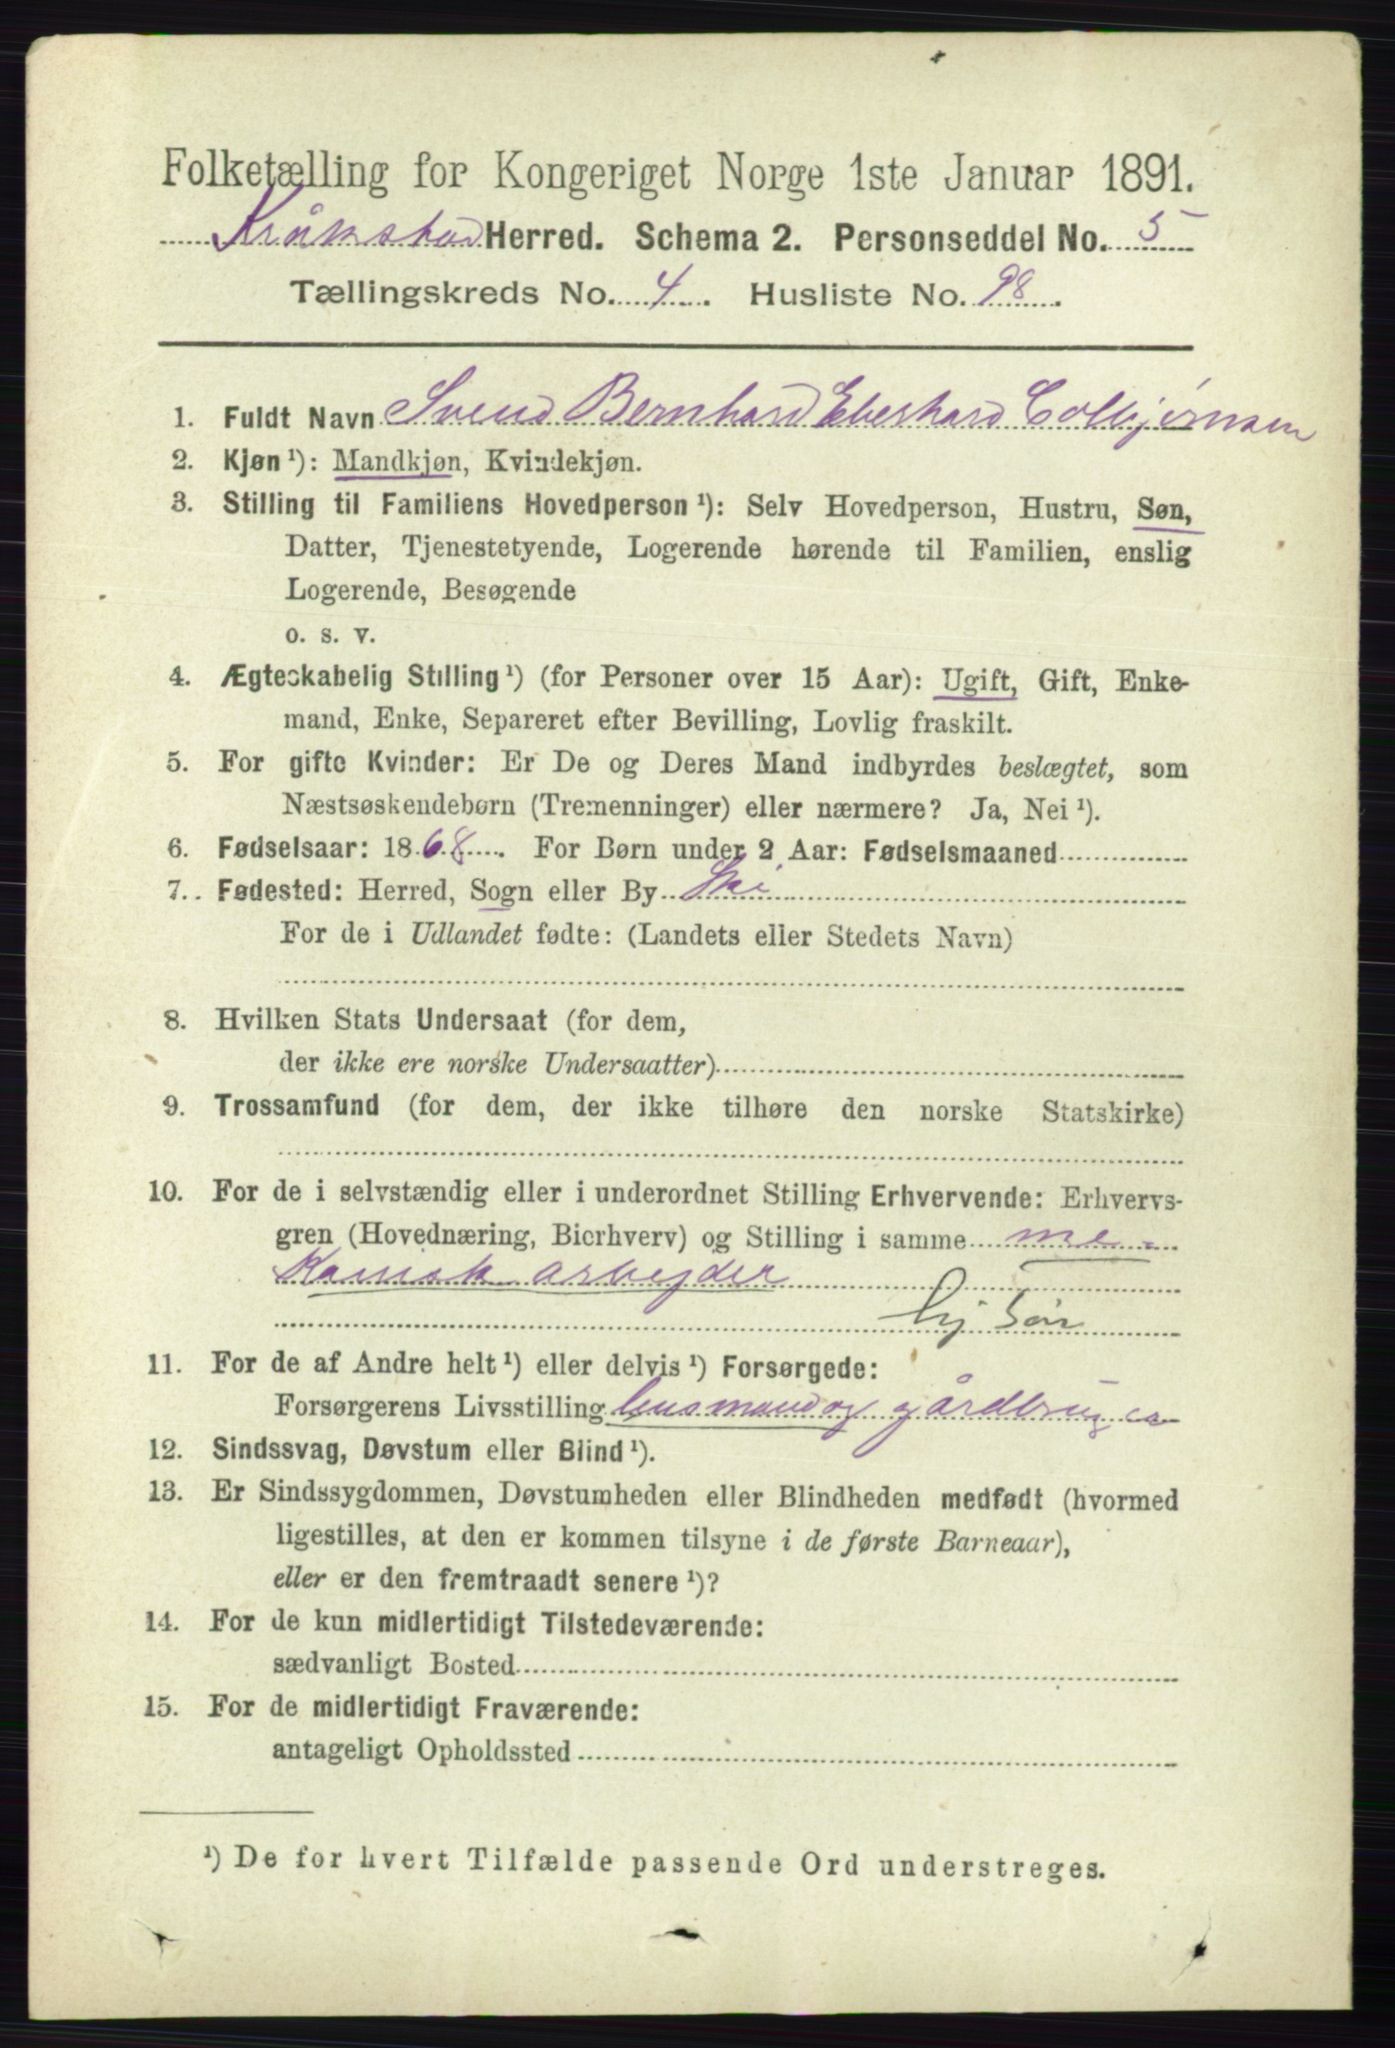 Folketælling for Kongeriget Norge 1ste Januar 1891.
Kråkstad Herred. Schema 2. Personseddel No. 5
Tællingskreds No. 4. Husliste No. 98.
1. Fuldt Navn Svend Bernhard Eberhard Colbjørnsen
2. Kjøn ¹): Mandkjøn, Kvindekjøn.
3. Stilling til Familiens Hovedperson ¹): Selv Hovedperson, Hustru, Søn,
Datter, Tjenestetyende, Logerende hørende til Familien, enslig
Logerende, Besøgende
o. s. v.
4. Ægteskabelig Stilling ¹) (for Personer over 15 Aar): Ugift, Gift, Enke-
mand, Enke, Separeret efter Bevilling, Lovlig fraskilt.
5. For gifte Kvinder: Er De og Deres Mand indbyrdes beslægtet, som
Næstsøskendebørn (Tremenninger) eller nærmere? Ja, Nei ¹).
6. Fødselsaar: 1868. For Børn under 2 Aar: Fødselsmaaned
7. Fødested: Herred, Sogn eller By Ski
For de i Udlandet fødte: (Landets eller Stedets Navn)
8. Hvilken Stats Undersaat (for dem,
der ikke ere norske Undersaatter)
9. Trossamfund (for dem, der ikke tilhøre den norske Statskirke)
10. For de i selvstændig eller i underordnet Stilling Erhvervende: Erhvervs-
gren (Hovednæring, Bierhverv) og Stilling i samme me-
Kanisk arbejder
Søn
11. For de af Andre helt ¹) eller delvis ¹) Forsørgede:
Forsørgerens Livsstilling husmand og gårdbruger
12. Sindssvag, Døvstum eller Blind ¹).
13. Er Sindssygdommen, Døvstumheden eller Blindheden medfødt (hvormed
ligestilles, at den er kommen tilsyne i de første Barneaar),
eller er den fremtraadt senere ¹)?
14. For de kun midlertidigt Tilstedeværende:
sædvanligt Bosted
15. For de midlertidigt Fraværende:
antageligt Opholdssted
¹) De for hvert Tilfælde passende Ord understreges.